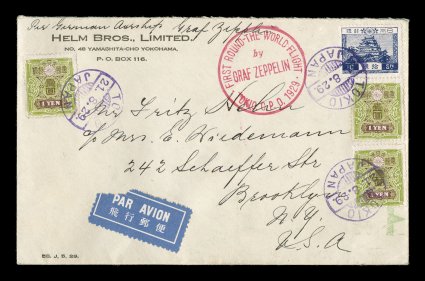 Per German Airship Graf Zeppelin
HELM BROS., LIMITED.
NO. 48 YAMASHITA-CHO YOKOHAMA.
P. O. BOX 116.
FIRST ROUND-THE-WORLD-FLIGHT
by
GRAF ZEPPELIN
TOKIO G.P.O. 1929.
TOKIO
8.29
JAPAN
1 YEN
JAPAN
8.29
1 YEN
1 YEN
TOKIO
8.29
JAPAN
Mr. Fritz Helm
c/o Mrs. E. Wiedemann
242 Schaeffer Str
Brooklyn
N.Y.
U.S.A
PAR AVION
飛行郵便